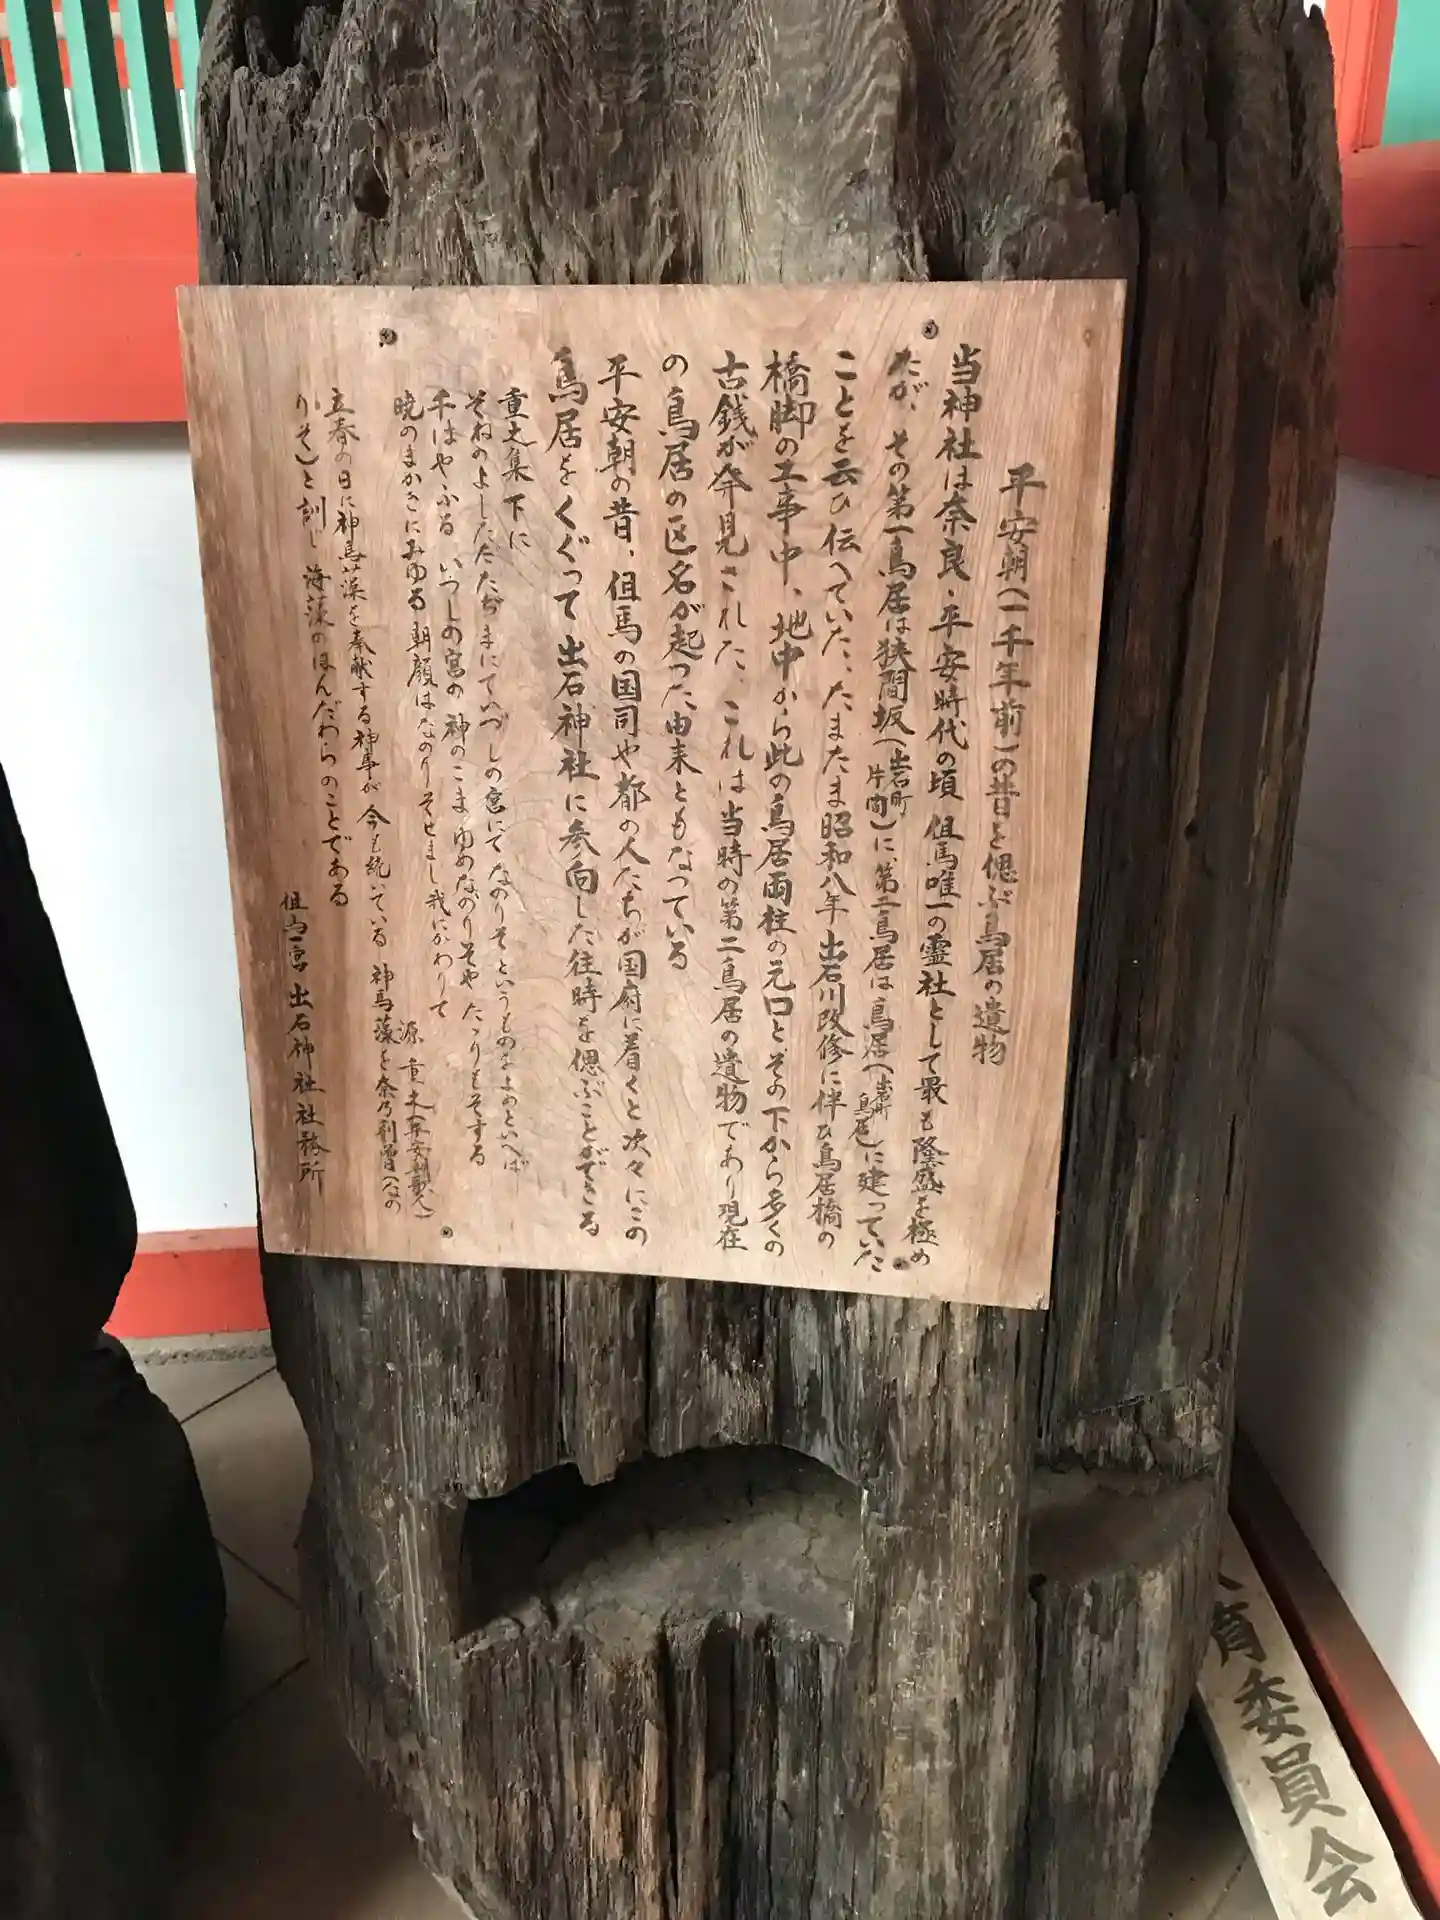 平安朝(一千年前)の昔を偲ぶ鳥居の遺物
当神社は奈良・平安時代の頃但馬唯一の霊社として最も隆盛を極め
たが、その第一鳥居は狭間坂(出石町片間)に、第二鳥居は鳥居(出石町鳥居)に建っていた
ことを云ひ伝へていた、たまたま昭和八年出石川改修に伴ひ鳥居橋の
橋脚の工事中、地中から此の鳥居両柱の元口と、その下から多くの
古銭が発見された、これは当時の第二鳥居の遺物であり現在
の鳥居の区名が起った由来ともなっている
平安朝の昔、但馬の国司や都の人たちが国府に着くと次々にこの
鳥居をくぐって出石神社に参向した往時を偲ぶことができる
重之集下に
そねのよしただたぢまにていづしの宮にてなのりそというものをよめといへば
千はやふるいづしの宮の神のこまゆめなのりそやたゝりもそする
暁のまがきにみゆる朝顔はなのりそせまし我にかわりて
源重之(平安朝歌人)
立春の日に神馬藻を奉献する神事が今も続いている 神馬藻を奈乃利曽(なの
りそ)と訓じ海藻のほんだわらのことである
但馬一宮 出石神社社務所
育委員会